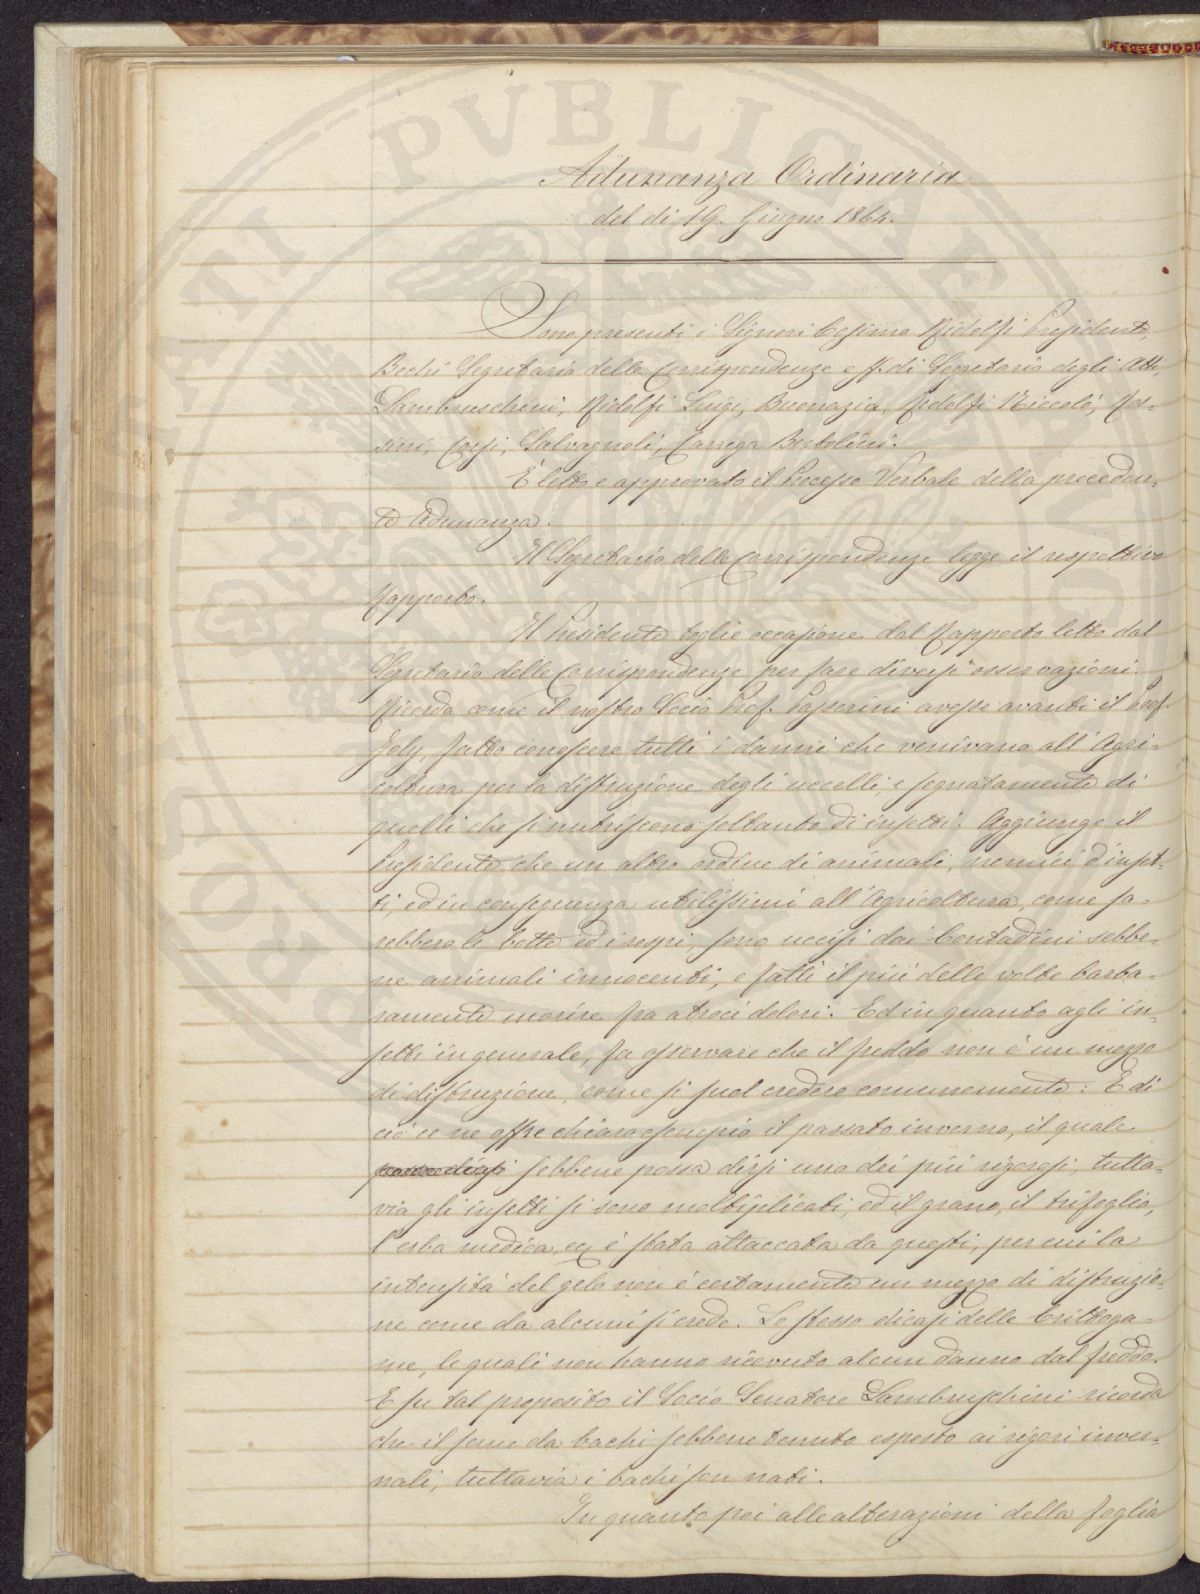 Adunanza Ordinaria
del dì 19. Giugno 1864.
Sono presenti i Signori Cosimo Ridolfi Presidente,
Bechi Segretario delle Corrispondenze e ff. di Segretario degli Atti,
Lambruschini, Ridolfi Luigi, Buonazia, Ridolfi Niccolò,
Salvagnoli, Carrega Bertolini.
È letto e approvato il Processo Verbale della preceden-
te Adunanza.
Il Segretario delle Corrispondenze legge il respettivo
Rapporto.
Il Presidente toglie occasione dal Rapporto letto dal
Segretario delle Corrispondenze per fare diverse osservazioni.
Ricorda come il nostro Socio Prof. Passerini avesse avanti il Prof.
Joly, fatto conoscere tutti i danni che venivano all'Agri-
coltura per la distruzione degli uccelli, e segnatamente di
quelli che si nutriscono soltanto di insetti. Aggiunge il
Presidente che un altro ordine di animali, nemici d'inset-
ti, ed in conseguenza utilissimi all'Agricoltura, come sa-
rebbero le botte ed i rospi, sono uccisi dai Contadini sebbe-
ne animali innocenti, e fatti il più delle volte barba-
ramente morire fra atroci dolori. Ed in quanto agli in-
setti in generale, fa osservare che il freddo non è un mezzo
di distruzione, come si suol credere comunemente: E di
ciò ce ne offre chiaro esempio il passato inverno, il quale
sebbene possa dirsi uno dei più rigorosi, tutta-
via gli insetti si sono moltiplicati, ed il grano, il trifoglio,
l'erba medica, è stata attaccata da questi, per cui la
intensità del gelo non è certamente un mezzo di distruzio-
ne come da alcuni si crede. Lo stesso dicasi delle Crittoga-
me, le quali non hanno ricevuto alcun danno dal freddo.
E su tal proposito il Socio Senatore Lambruschini ricorda
che il seme da bachi sebbene tenuto esposto ai rigori inver-
nali, tuttavia i bachi son nati.
In quanto poi alle alterazioni della foglia